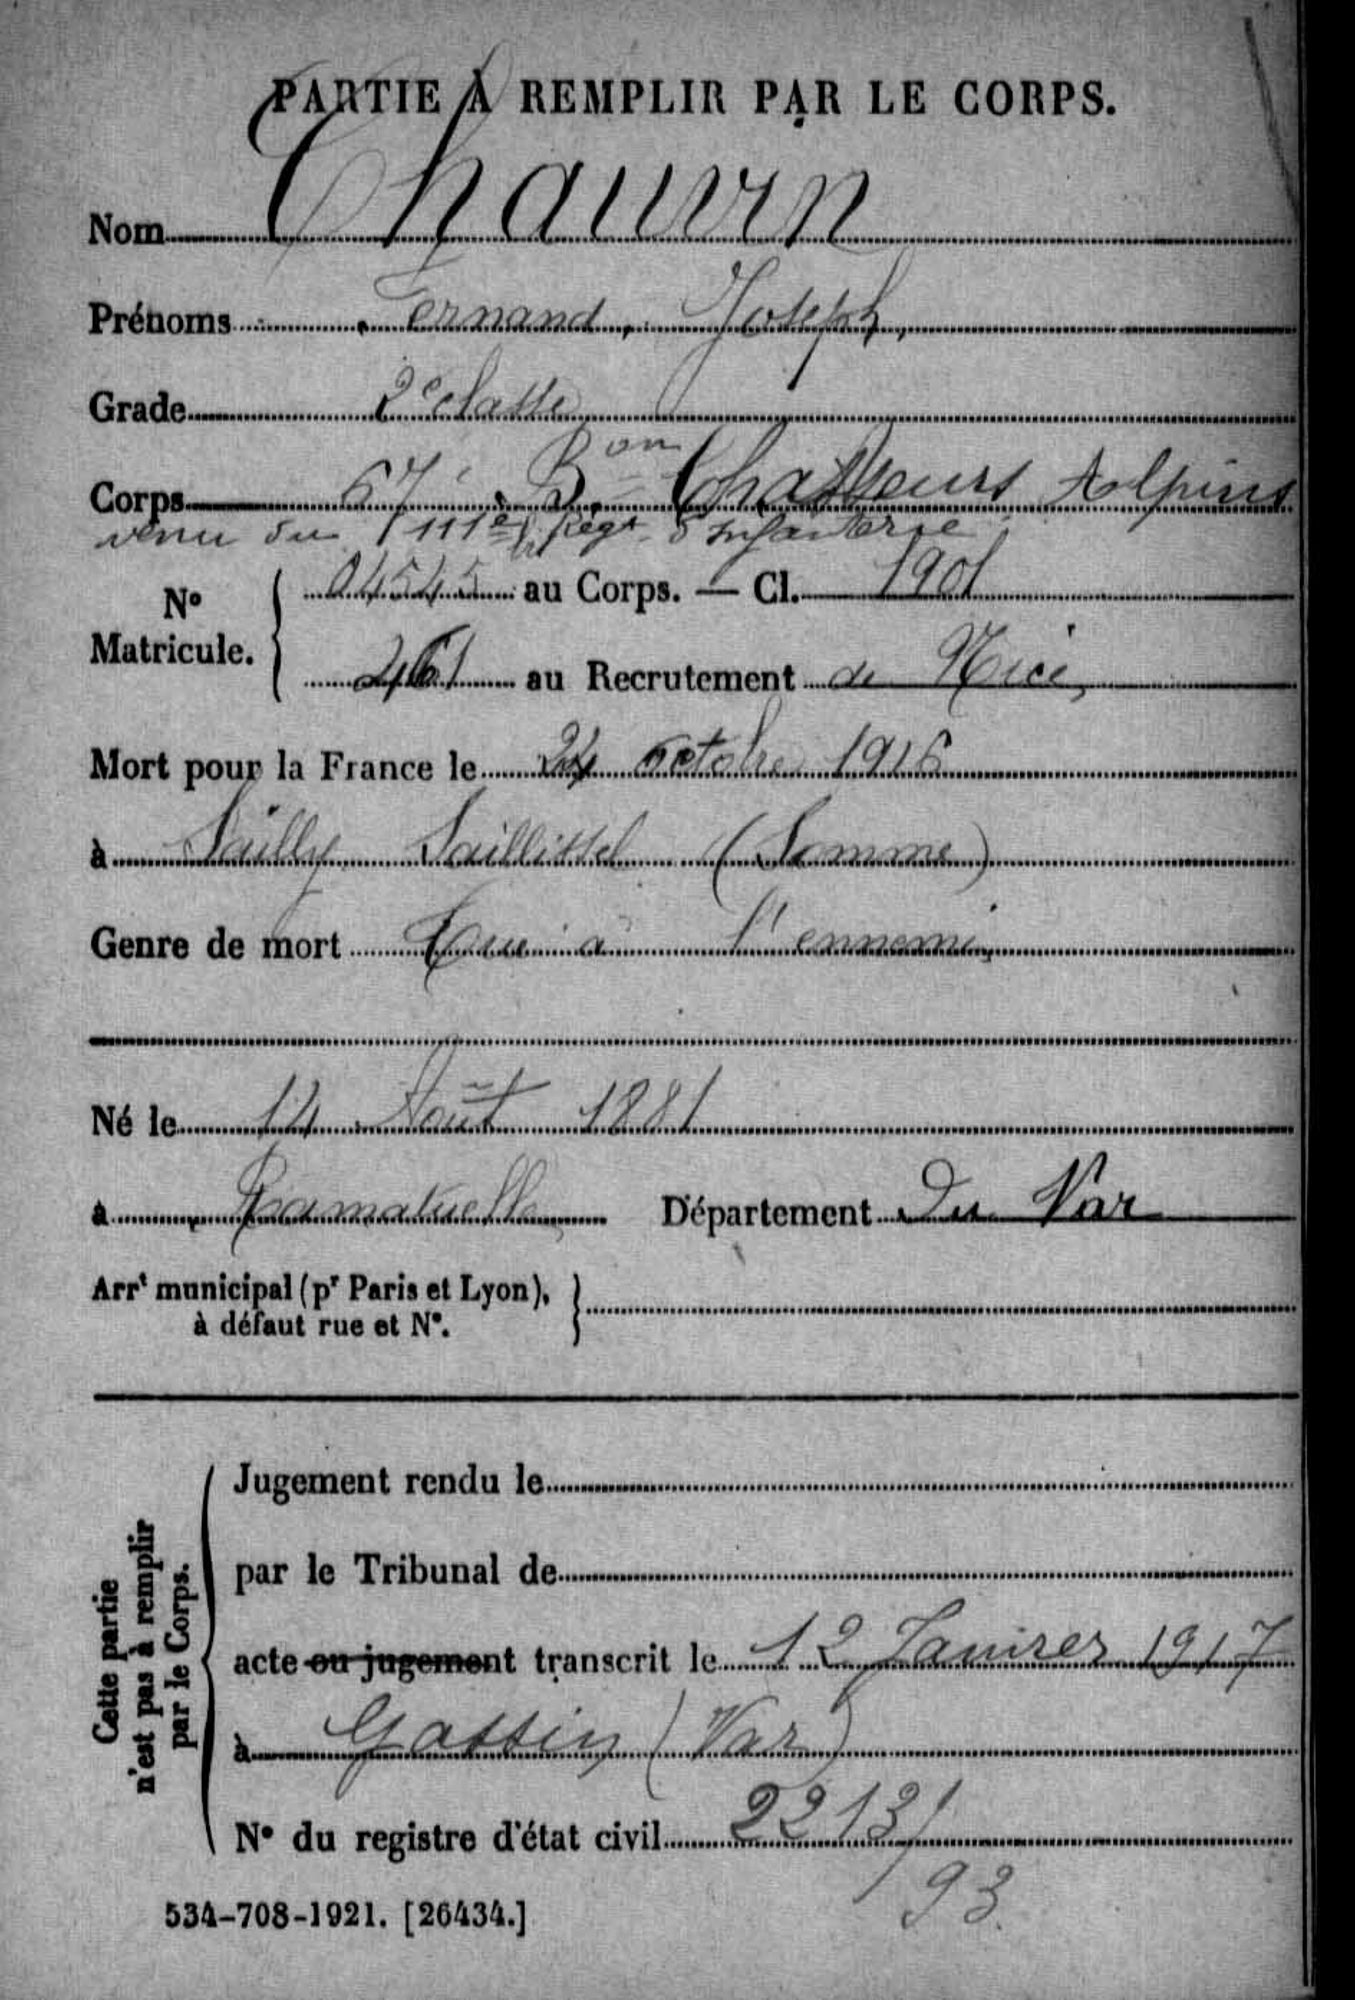 PARTIE À REMPLIR PAR LE CORPS.
Nom Chauvin
Prénoms Fernand, Joseph,
Grade 2e classe
Corps 67e Bon Chasseurs Alpins
venu du 111e Régt d'Infanterie
No Matricule. { 04545 au Corps. — Cl. 1901
461 au Recrutement de Nice,
Mort pour la France le 24 octobre 1916
à Sailly Saillissel (Somme)
Genre de mort Tué à l'ennemi,
Né le 14 Août 1881
à Ramatuelle Département du Var
Arrt municipal (pr Paris et Lyon), }
à défaut rue et No.
Cette partie
n'est pas à remplir
par le Corps.
Jugement rendu le
par le Tribunal de
acte ou jugement transcrit le 12 Janvier 1917
à Gassin (Var)
No du registre d'état civil 2213/
93
534-708-1921. [26434.]